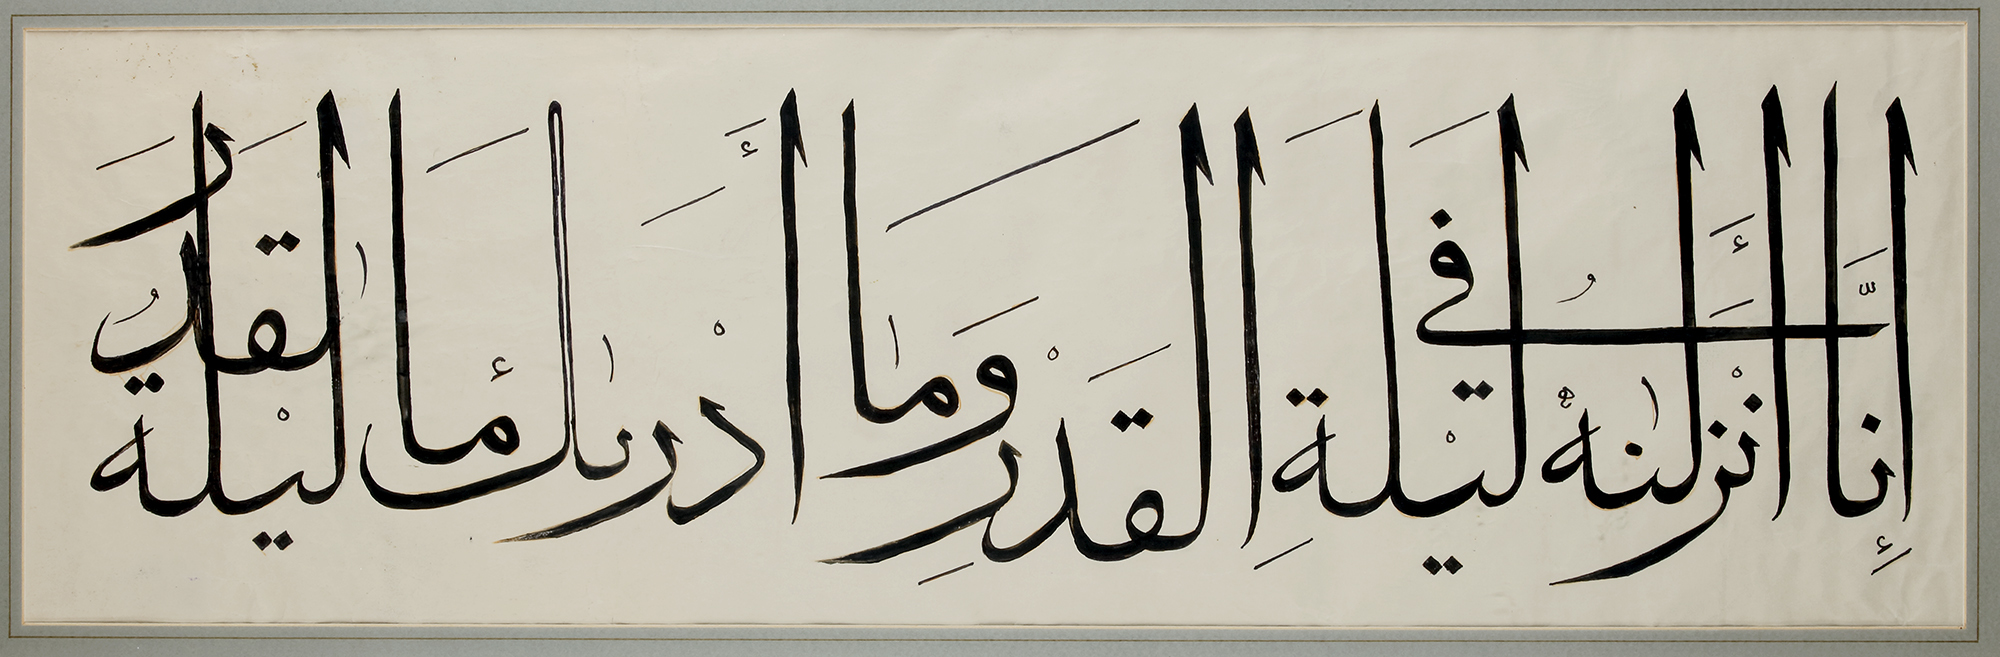 إنَّا أَنْزَلْنٰهُ فى لَيْلَةِ الْقَدْرِ وَمٰا أَدْرَىٰكَ مٰا لَيْلَة القَدر